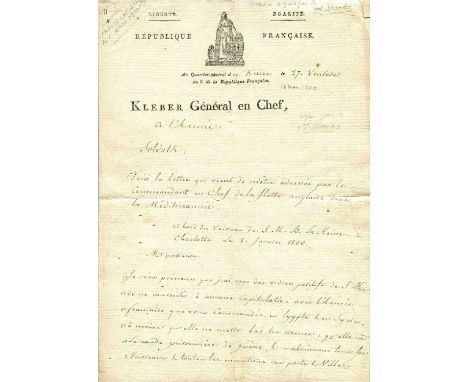 LIBERTÉ. ÉGALITÉ.
RÉPUBLIQUE FRANÇAISE.
Au Quartier-général du Kaire le 27. Ventose
an 8 de la République Française.
18 mars 1800
KLEBER Général en Chef,
a l'Armée
Soldats,
Voici la lettre qui vient de m'être adressée par le
Commandant en Chef de la flotte anglaise dans
la Méditerrannée.
a bord du Vaisseau de S. M. B. la Reine
Charlotte le 8. Janvier 1800.
Monsieur
Je vous préviens que j'ai reçu des ordres positifs de S. M.
de ne consentir à aucune Capitulation avec l'Armée
française que vous Commandez en Egypte et en Syrie,
à moins qu'elle ne mette bas les armes, qu'elle ne
se rende prisonniere de guerre, et n'abandonne tous les
Vaisseaux et toutes les munitions des port et Ville